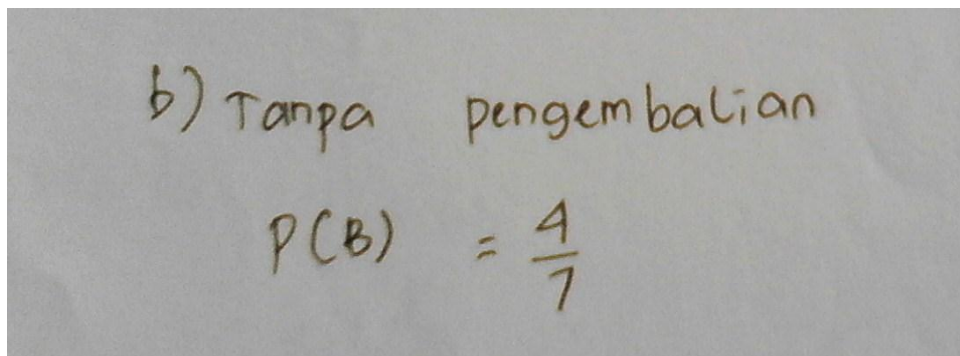 b) Tanpa pengembalian
P(B) = 4/7